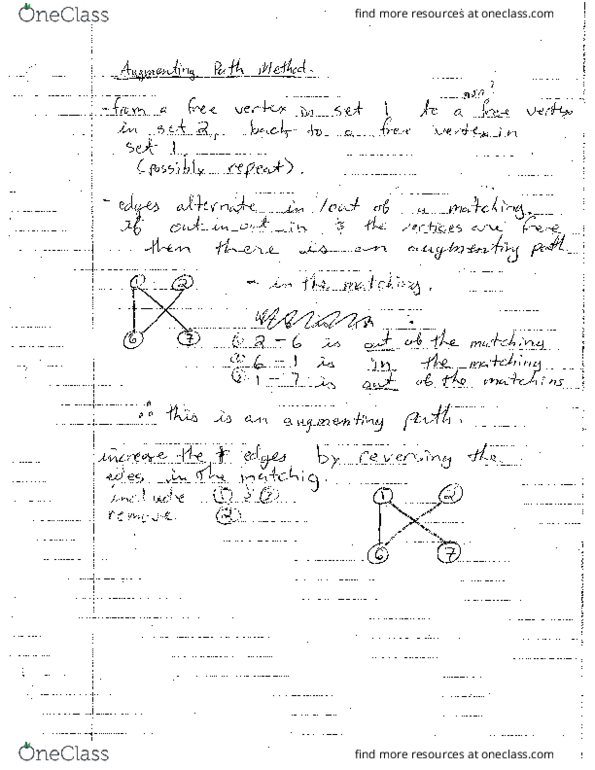 OneClass
find more resources at oneclass.com
Augmenting Path Method.
non?
- from a free vertex in set 1 to a free vertex
in set 2, back to a free vertex in
set 1.
(possibly repeat).
- edges alternate in/out of a matching.
If out in out in & the vertices are free
then there is an augmenting path
1 2
- in the matching.
6 7
① 2-6 is out of the matching
② 6-1 is in the matching
③ 1-7 is out of the matching
∴ this is an augmenting path.
increase the # edges by reversing the
edes in the matchig.
include ① & ③
remove ②
1 2
6 7
OneClass
find more resources at oneclass.com